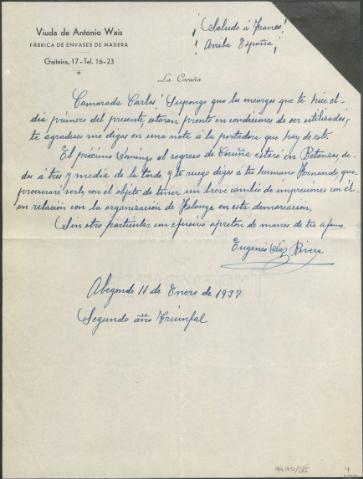 Viuda de Antonio Wais
FÁBRICA DE ENVASES DE MADERA
Gaiteira, 17 - Tel. 16-23
¡Saludo á Franco!
¡Arriba España!
La Coruña
Camarada Carlos: Supongo que los encargos que te hice el
día primero del presente, estarán pronto en condiciones de ser utilizados,
te agradecere me digas en una nota á la portadora que hay de esto.
El próximo domingo al regreso de Coruña estaré en Betanzos, de
dos á tres y media de la tarde y te ruego digas a tu hermano Fernando que
procurare verle, con el objeto de tener un breve cambio de impresiones con él
en relación con la organización de Falange en esta demarcación.
Sin otro particular un efusivo apretón de manos de tu afmo.
Eugenio Rivera
Abegondo 11 de Enero de 1938
Segundo año Triunfal
4